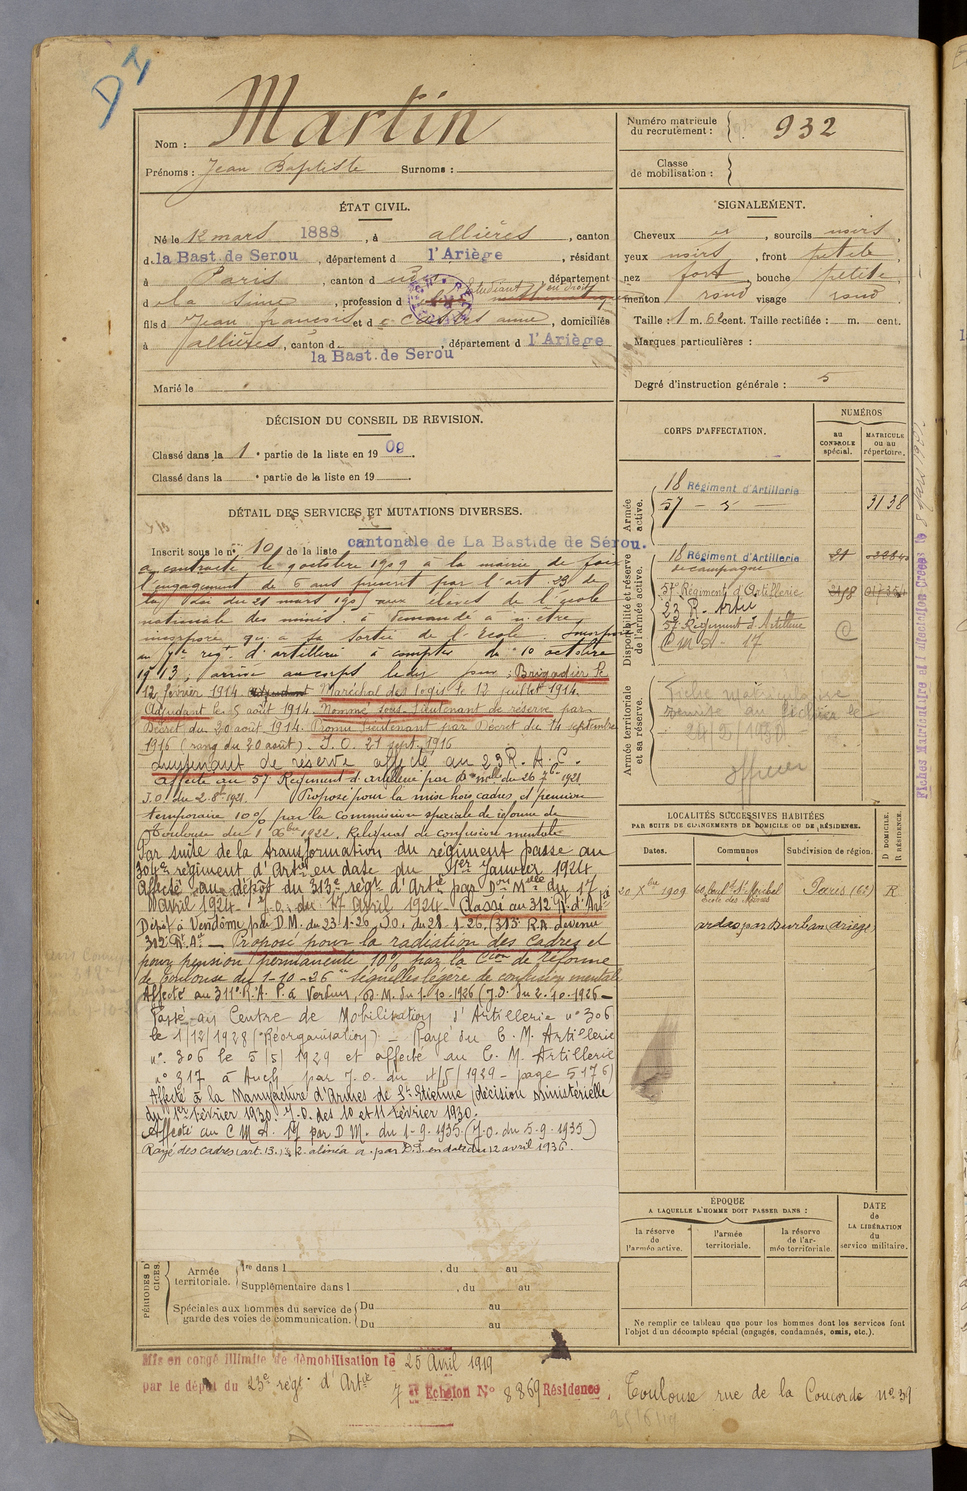 D I
Nom : Martin
Prénoms : Jean Baptiste Surnoms :
ÉTAT CIVIL.
Né le 12 mars 1888, à allières, canton
d la Bast. de Serou, département d l'Ariège, résidant
à Paris, canton d département
d la Seine, profession d étudiant en droit
fils d Jean françois et d anne, domiciliés
à allières, canton d la Bast. de Serou, département d l'Ariège
Marié le
DÉCISION DU CONSEIL DE REVISION.
Classé dans la 1 e partie de la liste en 1909.
Classé dans la e partie de la liste en 19
DÉTAIL DES SERVICES ET MUTATIONS DIVERSES.
Inscrit sous le n° 10 de la liste cantonale de La Bastide de Sérou.
a contracté le 9 octobre 1909 à la mairie de foix
l'engagement de 5 ans prescrit par l'art 23 de
la loi du 21 mars 1905 aux élèves de l'école
nationale des mines. a demandé à n'être
incorporé qu'à sa sortie de l'Ecole. Incorporé
au regt d'artillerie à compter du 10 octobre
1913, arrivé au corps le dit jour; Brigadier le
12 février 1914. Maréchal des logis le 12 juillet 1914.
Adjudant le 5 août 1914. Nommé sous-lieutenant de réserve par
Décret du 20 août 1914. Promu lieutenant par Décret du 14 septembre
1916 (rang du 20 août). J.O. 21 sept. 1916
Lieutenant de réserve affecté au 23 R.A.C.
Affecté au 57 Régiment d'artillerie par Don Mlle du 26 7bre 1921
J.O. du 2 8bre 1921. Proposé pour la mise hors cadres et pension
temporaire 10% par la Commission spéciale de réforme de
Toulouse du 1 Xbre 1922. Reliquat de confusion mentale
Par suite de la transformation du régiment passe au
304e régiment d'Artie en date du 1er Janvier 1924
Affecté au dépôt du 313e régt d'Artie par Don Mlle du 17
avril 1924 J.O. du 17 avril 1924. Classé au 312 Rt d'Artie
Dépôt à Vendôme par D.M. du 23-1-26 J.O. du 28-1-26. (313 R.A. devenu
312 R.A.) — Proposé pour la radiation des cadres et
pour pension permanente 10% par la Cion de Réforme
de Toulouse du 1-10-26 "séquelles légère de confusion mentale
Affecté au 311e R.A.P. à Verdun, D.M. du 1-10-1926 (J.O. du 2-10-1926 —
Passé au Centre de Mobilisation d'Artillerie n° 306
le 1/12/1928 (Réorganisation). — Rayé du C.M. Artillerie
n° 306 le 5/5/1929 et affecté au C.M. Artillerie
n° 317 à Auch par J.O. du 4/5/1929 - page 5176)
Affecté à la Manufacture d'Armes de St Etienne (décision ministérielle
du 1er février 1930 J.O. des 10 et 11 février 1930.
Affecté au C M A. 17 par D M. du 1-9-1935. (J.O. du 5-9-1935)
Rayé des cadres (art. 13. § 2. alinéa a. par D.P. en date du 12 avril 1936.
PÉRIODES D
CICES.
Armée territoriale. 1re dans l , du au
Supplémentaire dans l , du au
Spéciales aux hommes du service de garde des voies de communication. Du au
Du au
Mis en congé illimité de démobilisation le 25 Avril 1919
par le dépôt du 23e régt d'Artie
7e Echelon N° 8869 Résidence, Toulouse rue de la Concorde n° 31
Numéro matricule du recrutement : 932
Classe de mobilisation :
SIGNALEMENT.
Cheveux , sourcils noirs,
yeux noirs, front petite,
nez fort, bouche petite,
menton rond visage rond
Taille : 1 m. 62 cent. Taille rectifiée : m. cent.
Marques particulières :
Degré d'instruction générale : 5
CORPS D'AFFECTATION.
NUMÉROS
AU CONTROLE spécial.
MATRICULE ou au répertoire.
Armée active.
18 Régiment d'Artillerie
57 — 5 — 3138
Disponibilité et réserve de l'armée active.
18 Régiment d'Artillerie
de campagne
57 Régiment d'Artillerie
23 R. Artie
57 Régiment d'Artillerie
C M A - 17
Armée territoriale et sa réserve.
Fiche matriculaire
remise au fichier le
24/2/1930
officier
Fiches Matriculaire et d'Affectation Créées le
LOCALITÉS SUCCESSIVES HABITÉES
PAR SUITE DE CHANGEMENTS DE DOMICILE OU DE RÉSIDENCE.
Dates. Communes Subdivision de région. D DOMICILE. R RÉSIDENCE.
20 Xbre 1909 60, boul. St Michel Paris (6e) R
Ecole des Mines
ÉPOQUE
A LAQUELLE L'HOMME DOIT PASSER DANS :
la réserve de l'armée active.
l'armée territoriale.
la réserve de l'armée territoriale.
DATE
de
LA LIBÉRATION
du
service militaire.
Ne remplir ce tableau que pour les hommes dont les services font
l'objet d'un décompte spécial (engagés, condamnés, omis, etc.).